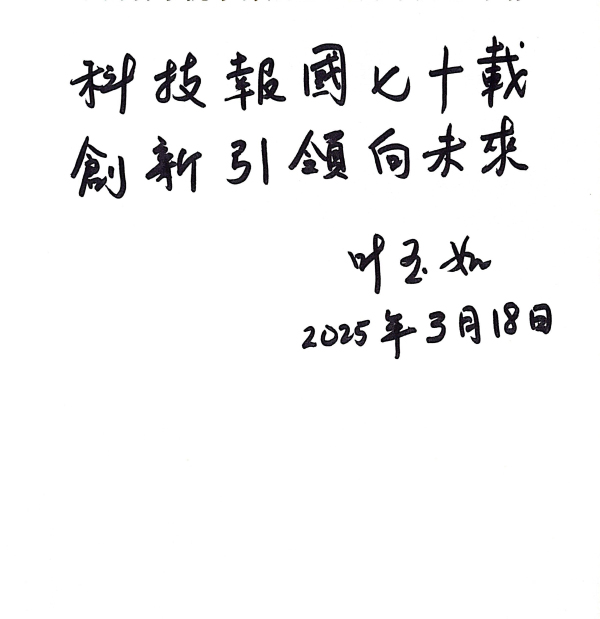 科技報國七十載
創新引領向未來
叶玉如
2025年3月18日